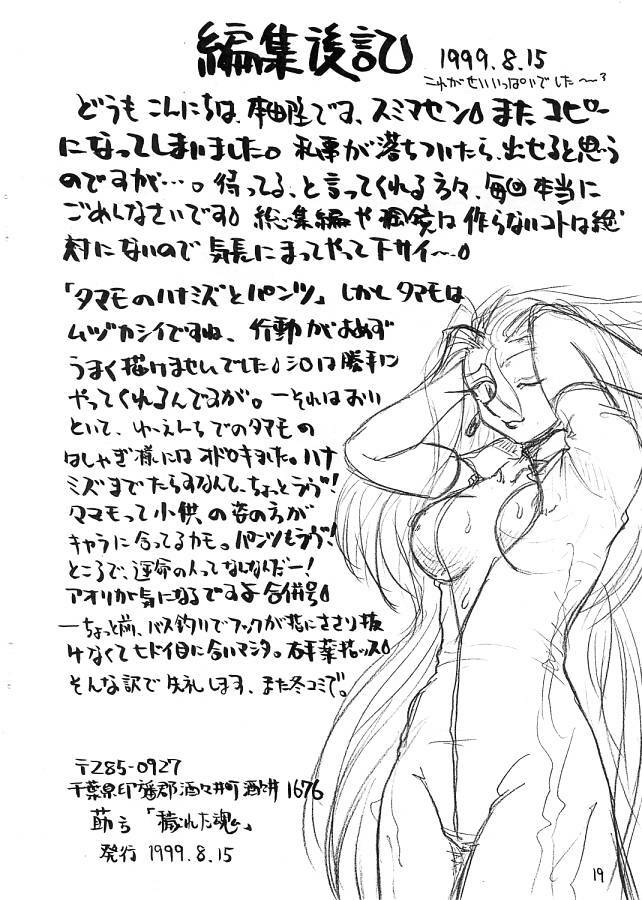 編集後記
1999.8.15
これがせいいっぱいでした〜
どうもこんにちは、本田陸です、スミマセン またコピー
になってしまいました。私事が落ちついたら、出せると思う
のですが…。待ってる、と言ってくれる方々、毎回本当に
ごめんなさいです 総集編や は作らないコトは絶
対にないので気長にまってやって下サイ〜。
「タマモのハナミズとパンツ」しかしタマモは
ムヅカシイですね、行動が よめず
うまく描けませんでした シロは勝手に
やってくれるんですが。—それはおい
といて、ゆーえんちでのタマモの
はしゃぎ様にはオドロキました。ハナ
ミズまでたらすなんて、ちょっとラヴ!
タマモって小供の姿の方が
キャラに合ってるカモ。パンツもラヴ!
ところで、運命の人ってなんなんだー!
アオリが気になるですよ合併号
—ちょっと前、バス釣りでフックが指にささり抜
けなくてヒドイ目に合いマシタ。右 ッス
そんな訳で失礼します、また冬コミで。
〒285-0927
千葉県印旛郡酒々井町酒々井1676
「穢れた魂」
発行 1999.8.15
19